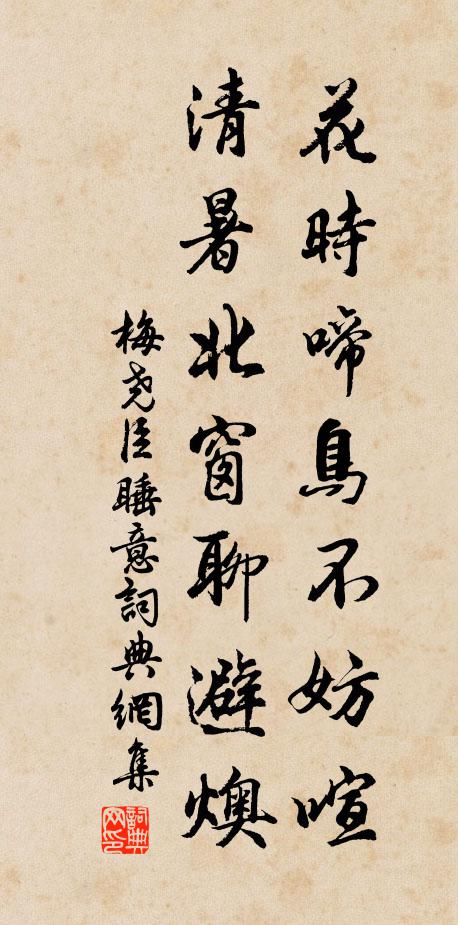 花時啼鳥不妨喧
清暑北窗聊避燠
梅堯臣睡意詞典網集
詞典网印